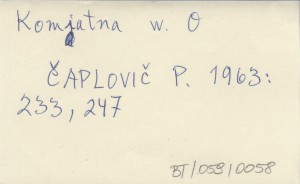 Komjatna w. O
ČAPLOVIČ P. 1963:
233, 247
BT/059/0058